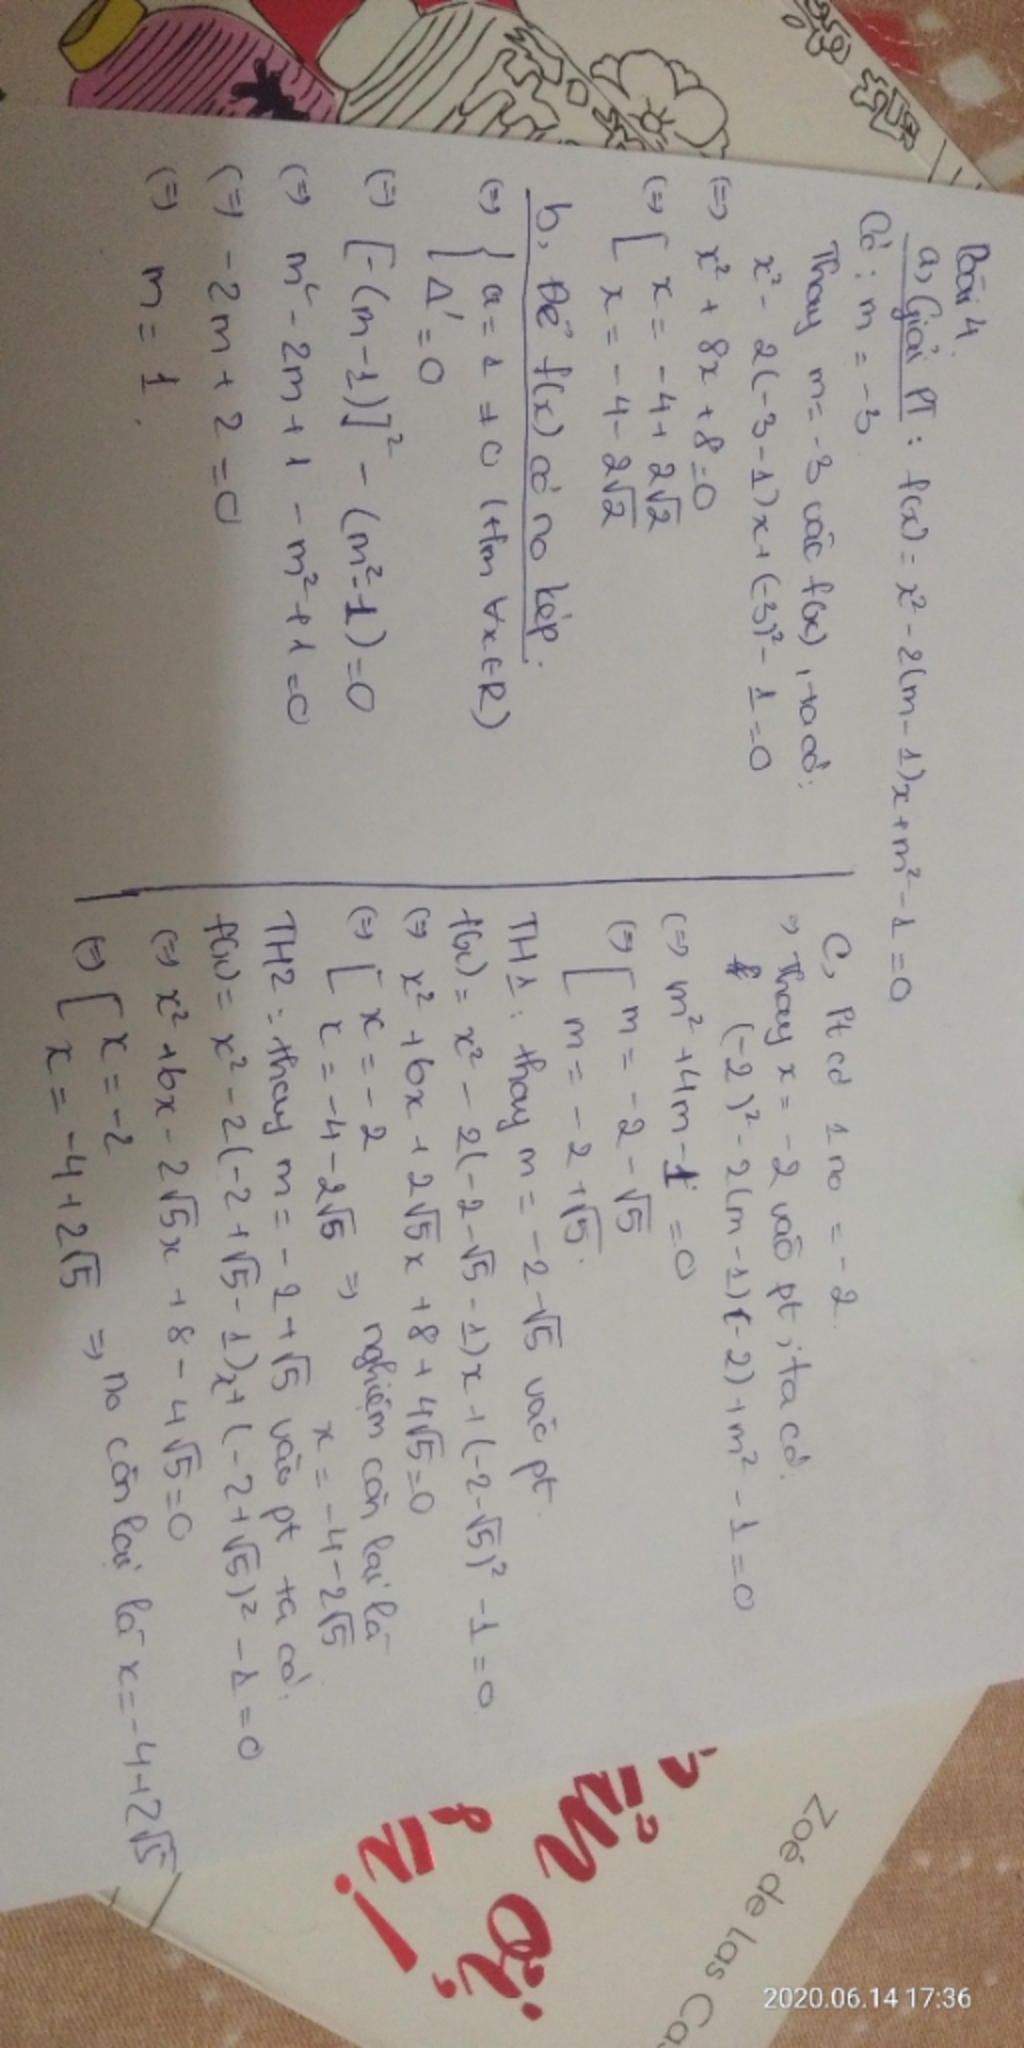 Bài 4.
a, Giải PT : f(x) = x² - 2(m-1)x + m² - 1 = 0
Có : m = -3
Thay m = -3 vào f(x), ta có:
x² - 2(-3-1)x + (-3)² - 1 = 0
(=) x² + 8x + 8 = 0
(=) [ x = -4 + 2√2
x = -4 - 2√2
b, Để f(x) có no kép.
(=) { a = 1 ≠ 0 (tm ∀x∈R)
Δ' = 0
(=) [-(m-1)]² - (m²-1) = 0
(=) m² - 2m + 1 - m² + 1 = 0
(=) -2m + 2 = 0
(=) m = 1.
C, Pt có 1 no = -2.
=, Thay x = -2 vào pt, ta có:
(-2)² - 2(m-1)(-2) + m² - 1 = 0
(=) m² + 4m - 1 = 0
(=) [ m = -2 - √5
m = -2 + √5.
TH1: thay m = -2-√5 vào pt
f(x) = x² - 2(-2-√5-1)x + (-2-√5)² - 1 = 0
(=) x² + 6x + 2√5x + 8 + 4√5 = 0
(=) [ x = -2
x = -4-2√5 =, nghiệm còn lại là
x = -4-2√5
TH2: thay m = -2+√5 vào pt ta có:
f(x) = x² - 2(-2+√5-1)x + (-2+√5)² - 1 = 0
(=) x² + 6x - 2√5x + 8 - 4√5 = 0
(=) [ x = -2
x = -4 + 2√5 =, no còn lại là x = -4+2√5
Zoé de Las Cas
2020.06.14 17:36